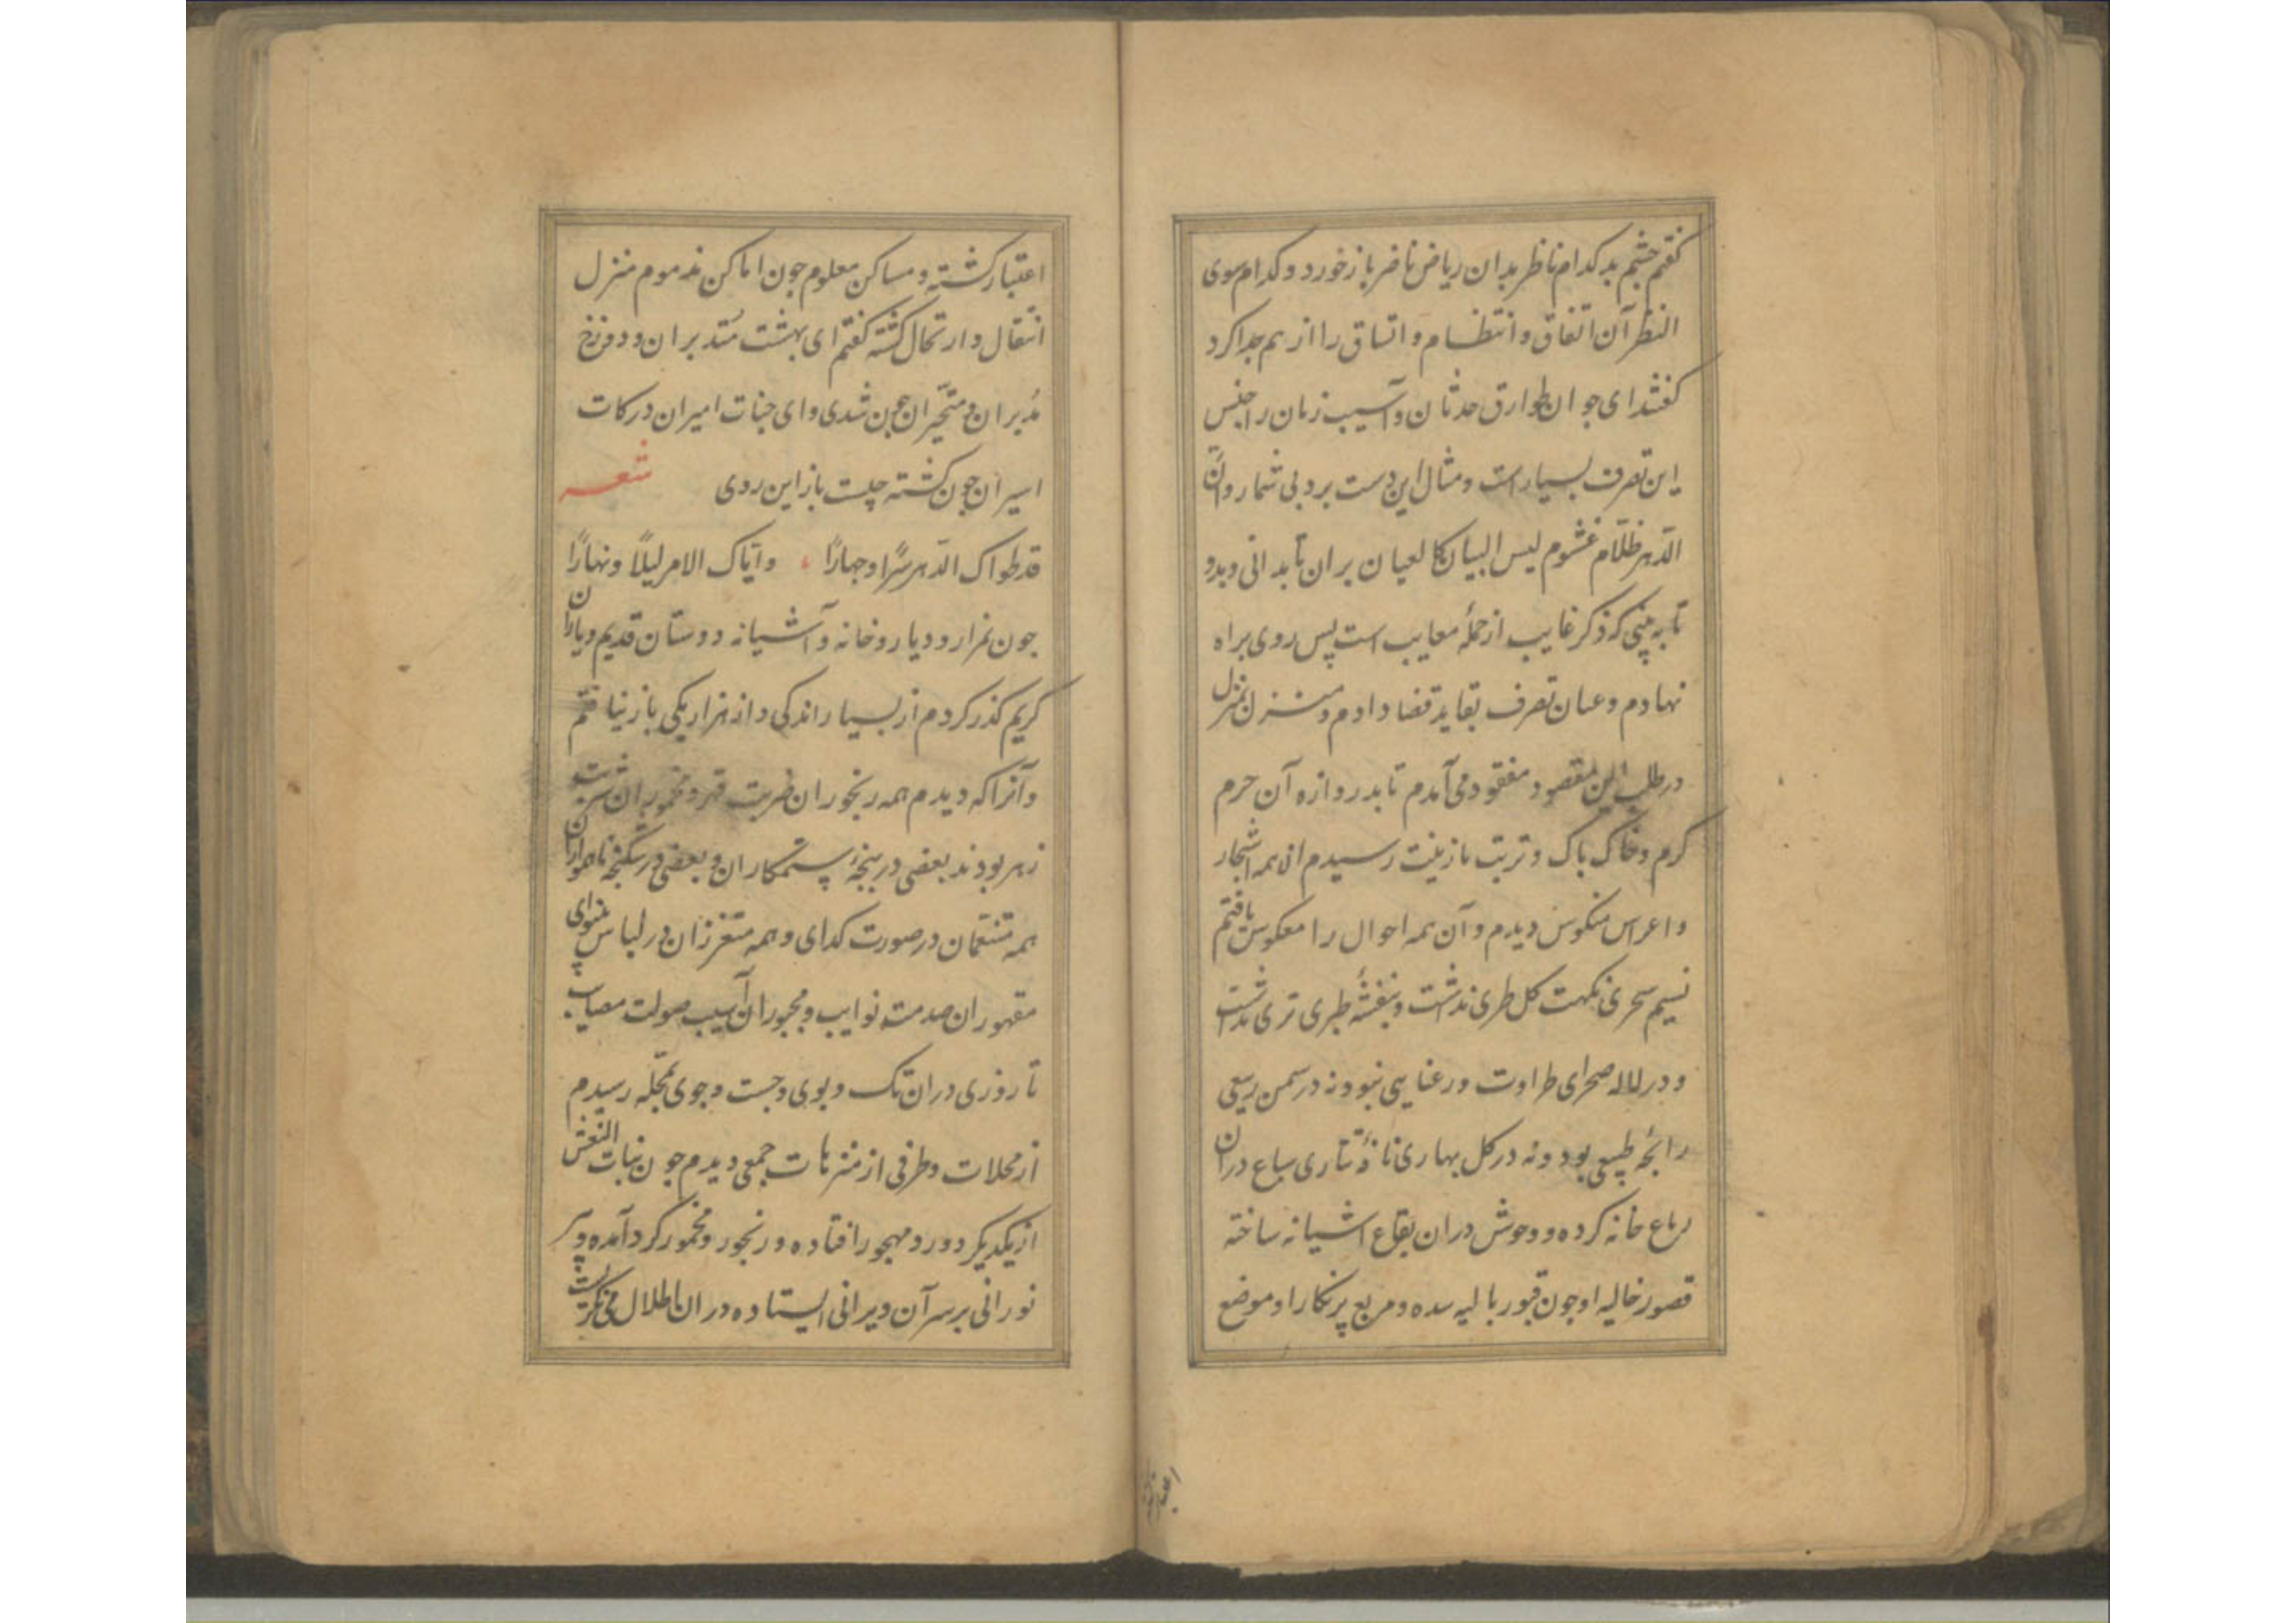 گفتم چشم بد کدام ناظر بدان ریاض ناضر باز خورد و کدام سوی
النظر آن اتفاق و انتظام و اتساق را از هم جدا کرد
گفتند ای جوان طوارق حدثان و آسیب زمان را جنس
این تصرف بسیار است و مثال این دست برد بی شمار وانّ
الدّهر ظلّام غشوم لیس البیان کالعیان بران تا بدانی و بدو
تا به بینی که ذکر غایب از جملهٔ معایب است پس روی براه
نهادم و عنان تصرف بقاید قضا دادم و منزل بمنزل
در طلب این مقصود مفقود می آمدم تا بدروازه آن حرم
کرم و خاک پاک و تربت با زینت رسیدم ان همه اشجار
و اعراس منکوس دیدم و آن همه احوال را معکوس یافتم
نسیم سحری نکهت کل طری نداشت و بنفشهٔ طبری تری نداشت
و در لاله صحرای طراوت و رعنایی نبود و نه در سمن ربیعی
رائحهٔ طبیعی بود و نه در کل بهاری نافهٔ تتاری سباع دران
رباع خانه کرده و وحوش دران بقاع اشیانه ساخته
قصور خالیه او جون قبور بالیه سده و مربع پرنکار او موضع
اعتبار
اعتبار کشته و مساکن معلوم جون اماکن مذموم منزل
انتقال و ارتحال کشته گفتم ای بهشت مُتدبران و دوزخ
مُدبران و متحّیران جون شدی و ای جنات امیران درکات
اسیران جون کشته جیست باز این روی شعر
قد طواک الدّهر سرًّا و جهارًا ، و اتاک الامر لیلًا و نهارًا
جون بمزار و دیار و خانه و آشیانه دوستان قدیم و یاران
کریم کذر کردم از بسیار اندکی و از هزار یکی باز نیافتم
و آنرا که دیدم همه رنجوران ضربت قهر و مخموران شربت
زهر بودند بعضی در پنجهٔ ستمکاران و بعضی در شکنجه ناهمواران
همه متنعمان در صورت کدای و همه متعززان در لباس بینوای
مقهوران صدمت نوایب و مجبوران آسیب صولت مصایب
تا روزی دران تک و پوی و جست و جوی بمحلّه رسیدم
از محلات و طرفی از منتزهات جمعی دیدم جون بنات النعش
از یکدیکر دور و مهجور افتاده و رنجور و مخمور کرد آمده و پیر
نورانی بر سر آن ویرانی ایستاده دران اطلال می نکریست